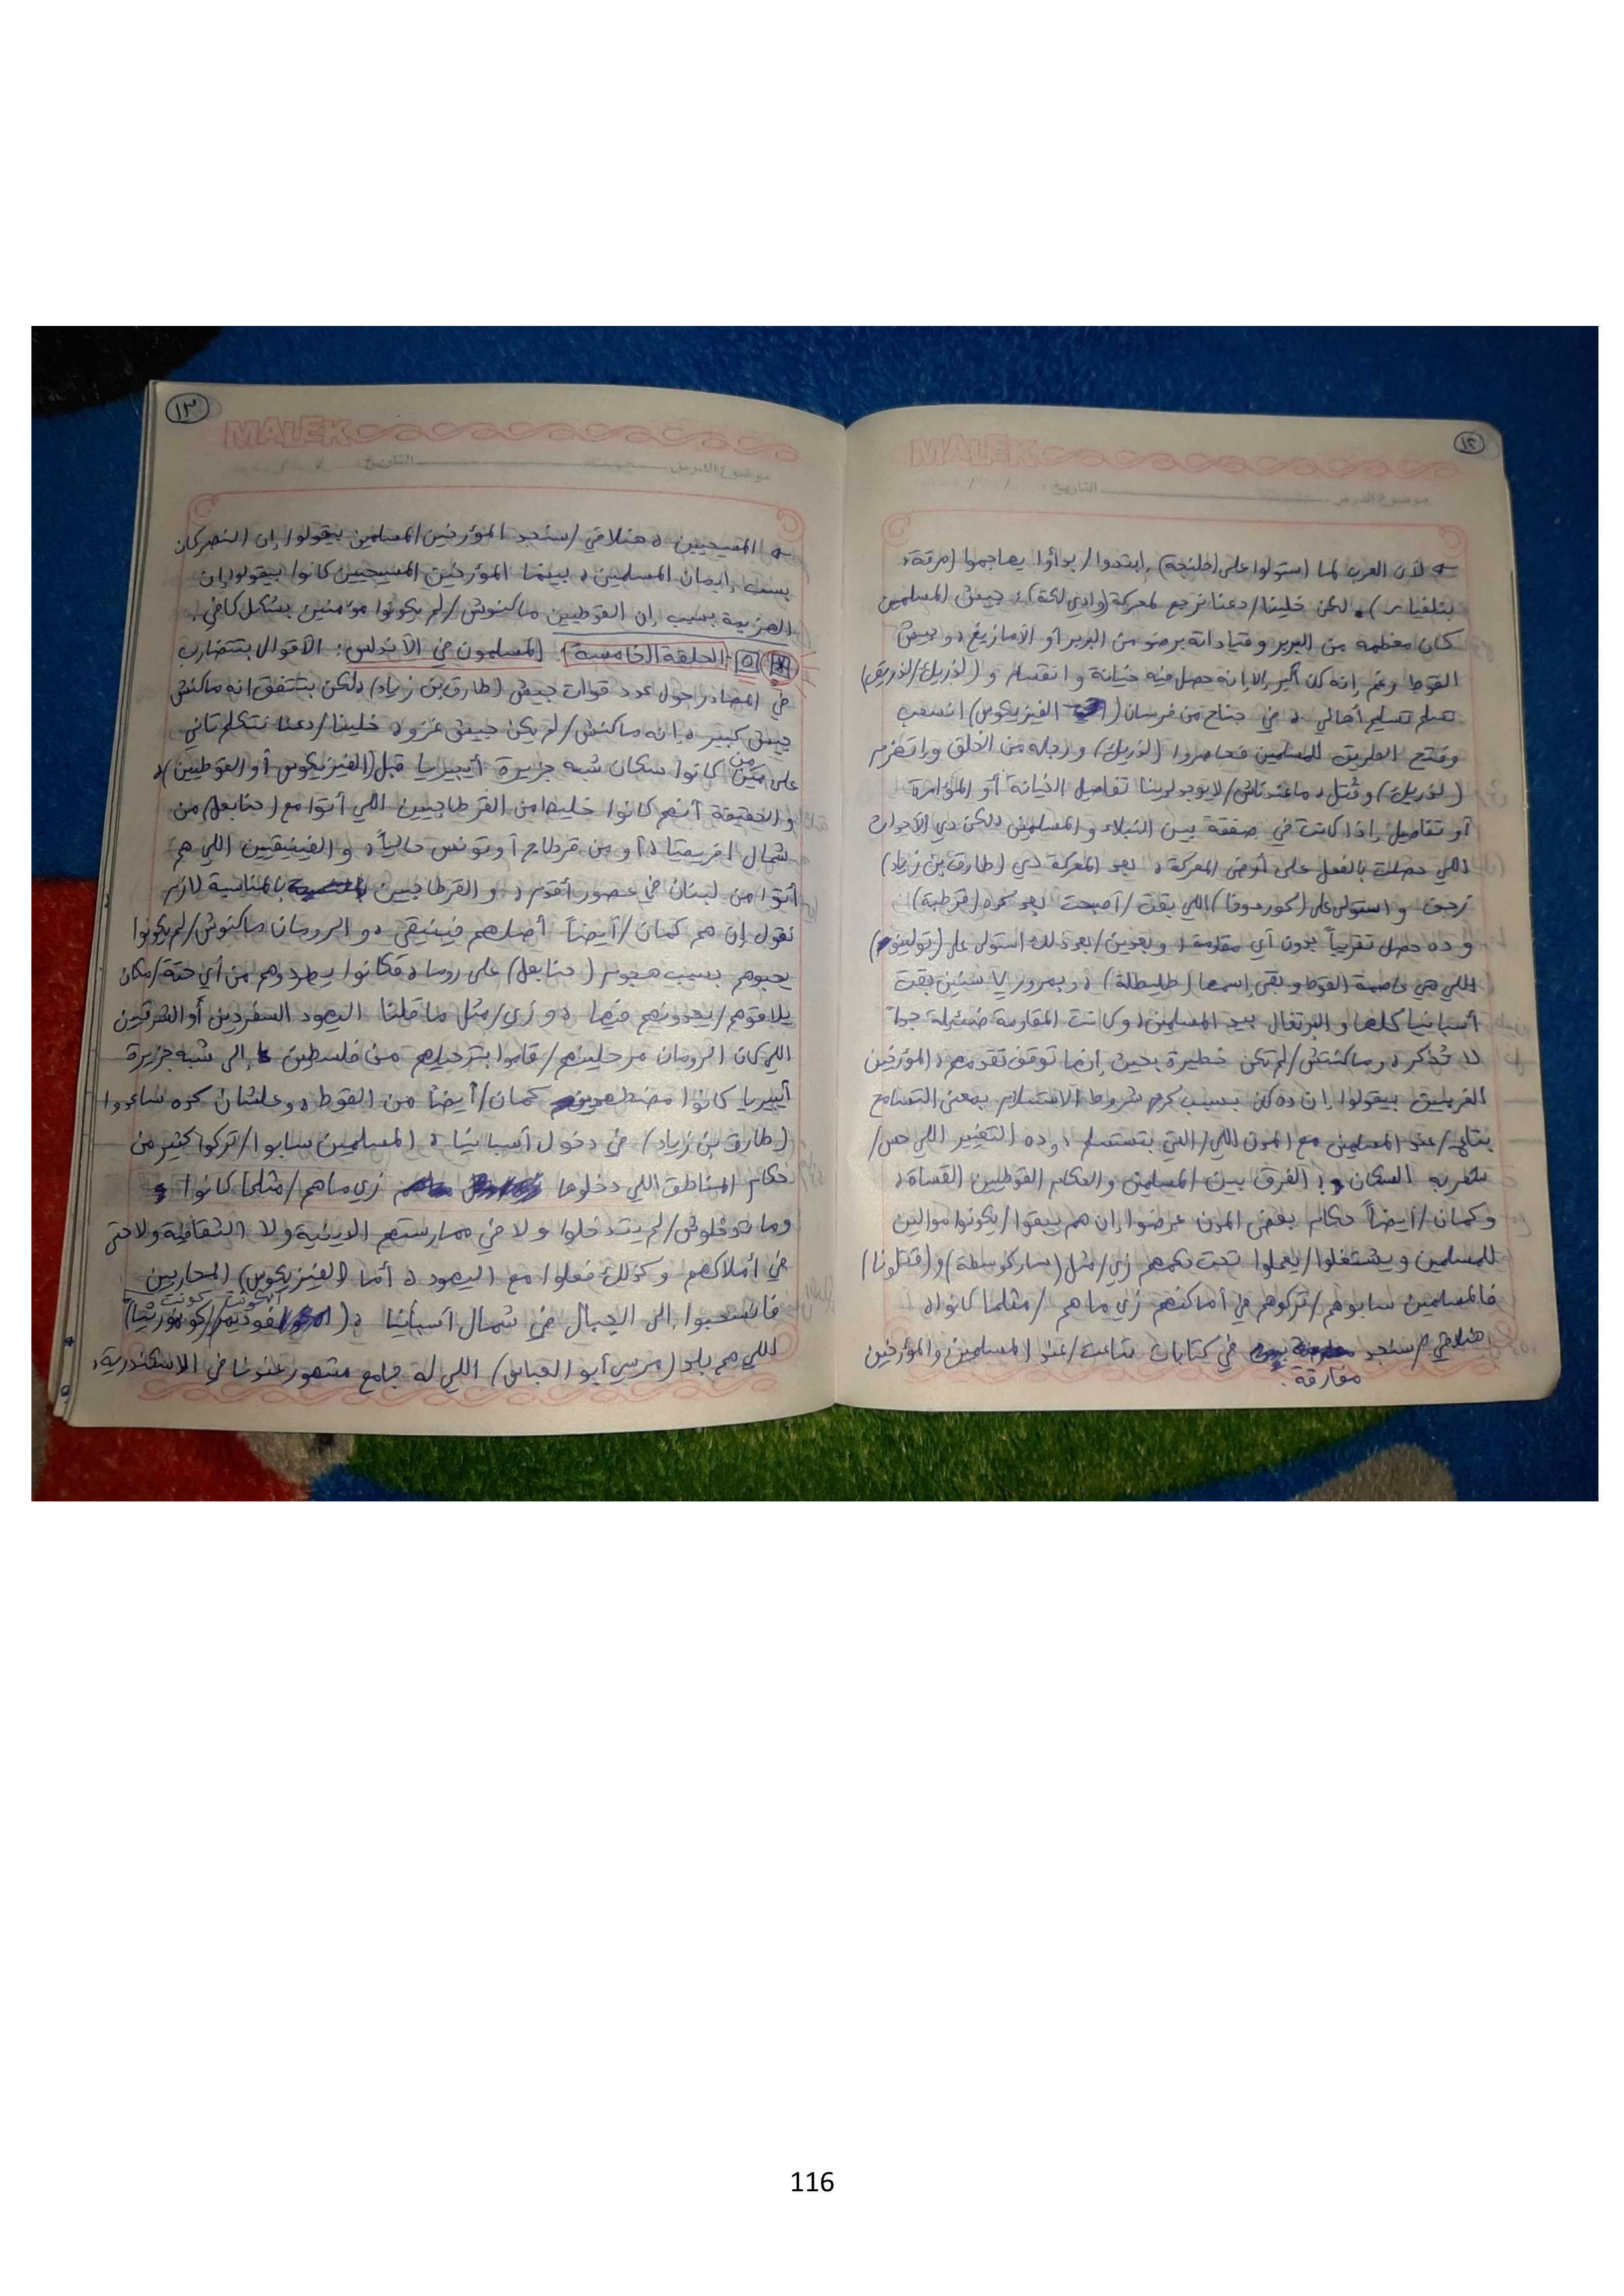 ١٢
MALEK
موضوع الدرس التاريخ: / /
لأن العرب لما استولوا على (طنجة)، ابتدوا/بدأوا يهاجموا
لكن خلينا/دعنا نرجع لمعركة (وادي لكة)، جيش المسلمين
كان معظمه من البربر وقياداته برضو من البربر أو الأمازيغ، وجيش
القوط رغم إنه كان أكبر إلا إنه حصل فيه خيانة وانقسام و (لذريك/لذريق)
في جناح من فرسان (الفيزيكوس) انسحب
وفتح الطريق للمسلمين فحاصروا (لذريك) ورجاله من الخلف وانهزم
(لذريك) وقُتل، ماعندناش/لايوجد لدينا تفاصيل الخيانة أو المؤامرة
أو تفاصيل إذا كانت في صفقة بين النبلاء والمسلمين، لكن دي الأحداث
اللي حصلت بالفعل على أرض المعركة، بعد المعركة دي (طارق بن زياد)
زحف واستولى على (كوردوفا) اللي بقت/أصبحت بعد كده (قرطبة)،
وده حصل تقريباً بدون أي مقاومة، وبعدين/بعد ذلك استولى على (توليتوم)
اللي هي عاصمة القوط وبقى إسمها (طليطلة)، وبمرور ٧ سنين بقت
أسبانيا كلها والبرتغال بيد المسلمين، وكانت المقاومة ضئيلة جداً
لا تُذكر، وماكنتش/لم تكن خطيرة بحيث إنها توقف تقدمهم، المؤرخين
بيقولوا إن ده كان بسبب كرم شروط الاستسلام بمعنى التسامح
بتاع/عند المسلمين مع المدن اللي/التي بتستسلم، وده التغيير اللي حس/
شعر به السكان، الفرق بين المسلمين والحكام القوطيين القساة،
وكمان/أيضاً حكام بعض المدن عرضوا إن هم يبقوا/يكونوا موالين
للمسلمين ويشتغلوا/يعملوا تحت حكمهم زي/مثل (ساراكوسطة) و(قتلونا)
فالمسلمين سابوهم/تركوهم في أماكنهم زي ما هم/مثلما كانوا،
هنلاقي/سنجد مفارقة في كتابات بتاعت/عند المسلمين والمؤرخين
١٣
MALEK
موضوع الدرس التاريخ: / /
المسيحيين، هنلاقي/سنجد المؤرخين المسلمين بيقولوا إن النصر كان
بسبب إيمان المسلمين، بينما المؤرخين المسيحيين كانوا بيقولو إن
الهزيمة بسبب إن القوطيين ماكنوش/لم يكونوا مؤمنين بشكل كافي.
٥ الحلقة الخامسة: المسلمون في الأندلس: الأقوال بتتضارب
في المصادر حول عدد قوات جيش (طارق بن زياد) ولكن بتتفق انه ماكنش
جيش كبير، إنه ماكنش/لم يكن جيش غزو، خلينا/دعنا نتكلم تاني
على من كانوا سكان شبه جزيرة أيبيريا قبل (الفيزيكوس أو القوطيين)،
والحقيقة أنهم كانوا خليط من القرطاجيين اللي أتوا مع (حنابعل) من
شمال إفريقيا، أو من قرطاج أو تونس حالياً، والفينيقيين اللي هم
أتوا من لبنان في عصور أقدم، والقرطاجيين بالمناسبة لازم
نقول إن هم كمان/أيضاً أصلهم فينيقي، والرومان ماكنوش/لم يكونوا
يحبوهم بسبب هجوم (حنابعل) على روما، فكانوا يطردوهم من أي حتة/مكان
يلاقوهم/يجدونهم فيها، وزي/مثل ما قلنا اليهود السفرديين أو الشرقيين
اللي كان الرومان مرحلينهم/قاموا بترحيلهم من فلسطين إلى شبه جزيرة
أيبيريا كانوا مضطهدين كمان/أيضاً من القوط، وعلشان كده ساعدوا
(طارق بن زياد) في دخول أسبانيا، المسلمين سابوا/تركوا كثير من
حكام المناطق اللي دخلوها زي ما هم/مثلما كانوا
وماتدخلوش/لم يتدخلوا ولا في ممارستهم الدينية ولا الثقافية ولا حتى
في أملاكهم وكذلك فعلوا مع اليهود، أما (الفيزيكوس) المحاربين
فانسحبوا إلى الجبال في شمال أسبانيا،
اللي هم بلد (مرسي أبو العباس) اللي له جامع مشهور عندنا في الاسكندرية،
116